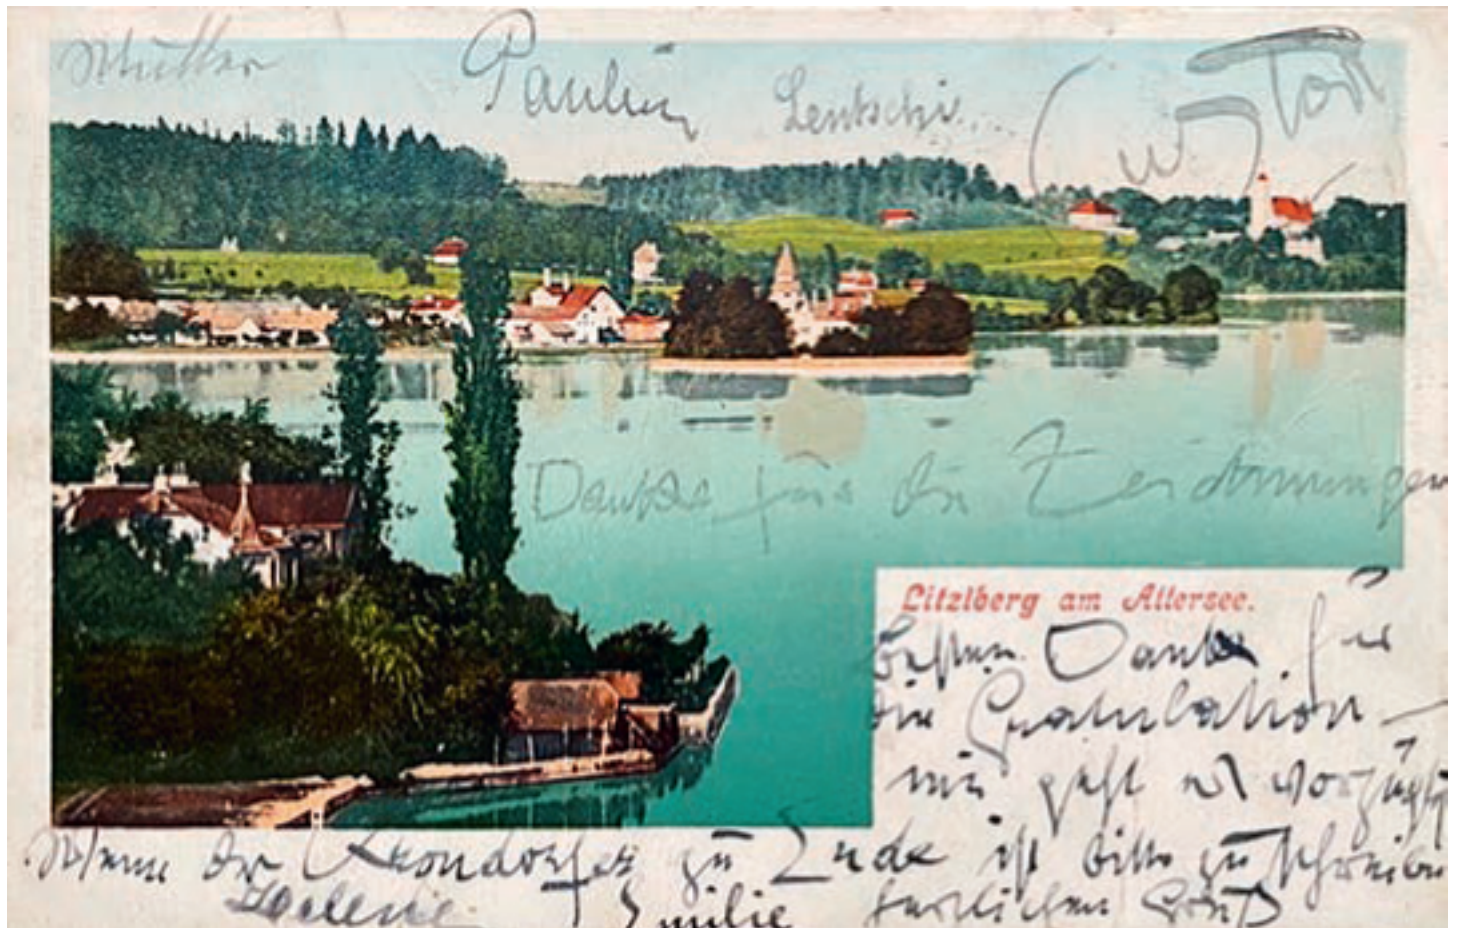 Mutter Paulin Lentschi...
Danke für die Zeichnungen
Litzlberg am Attersee.
besten Danke für
die Gratulation –
mir geht es vorzügl
Wenn der Krondorfer zu Ende ist bitte zu schreiben
Helene Emilie herzlichen Gruß